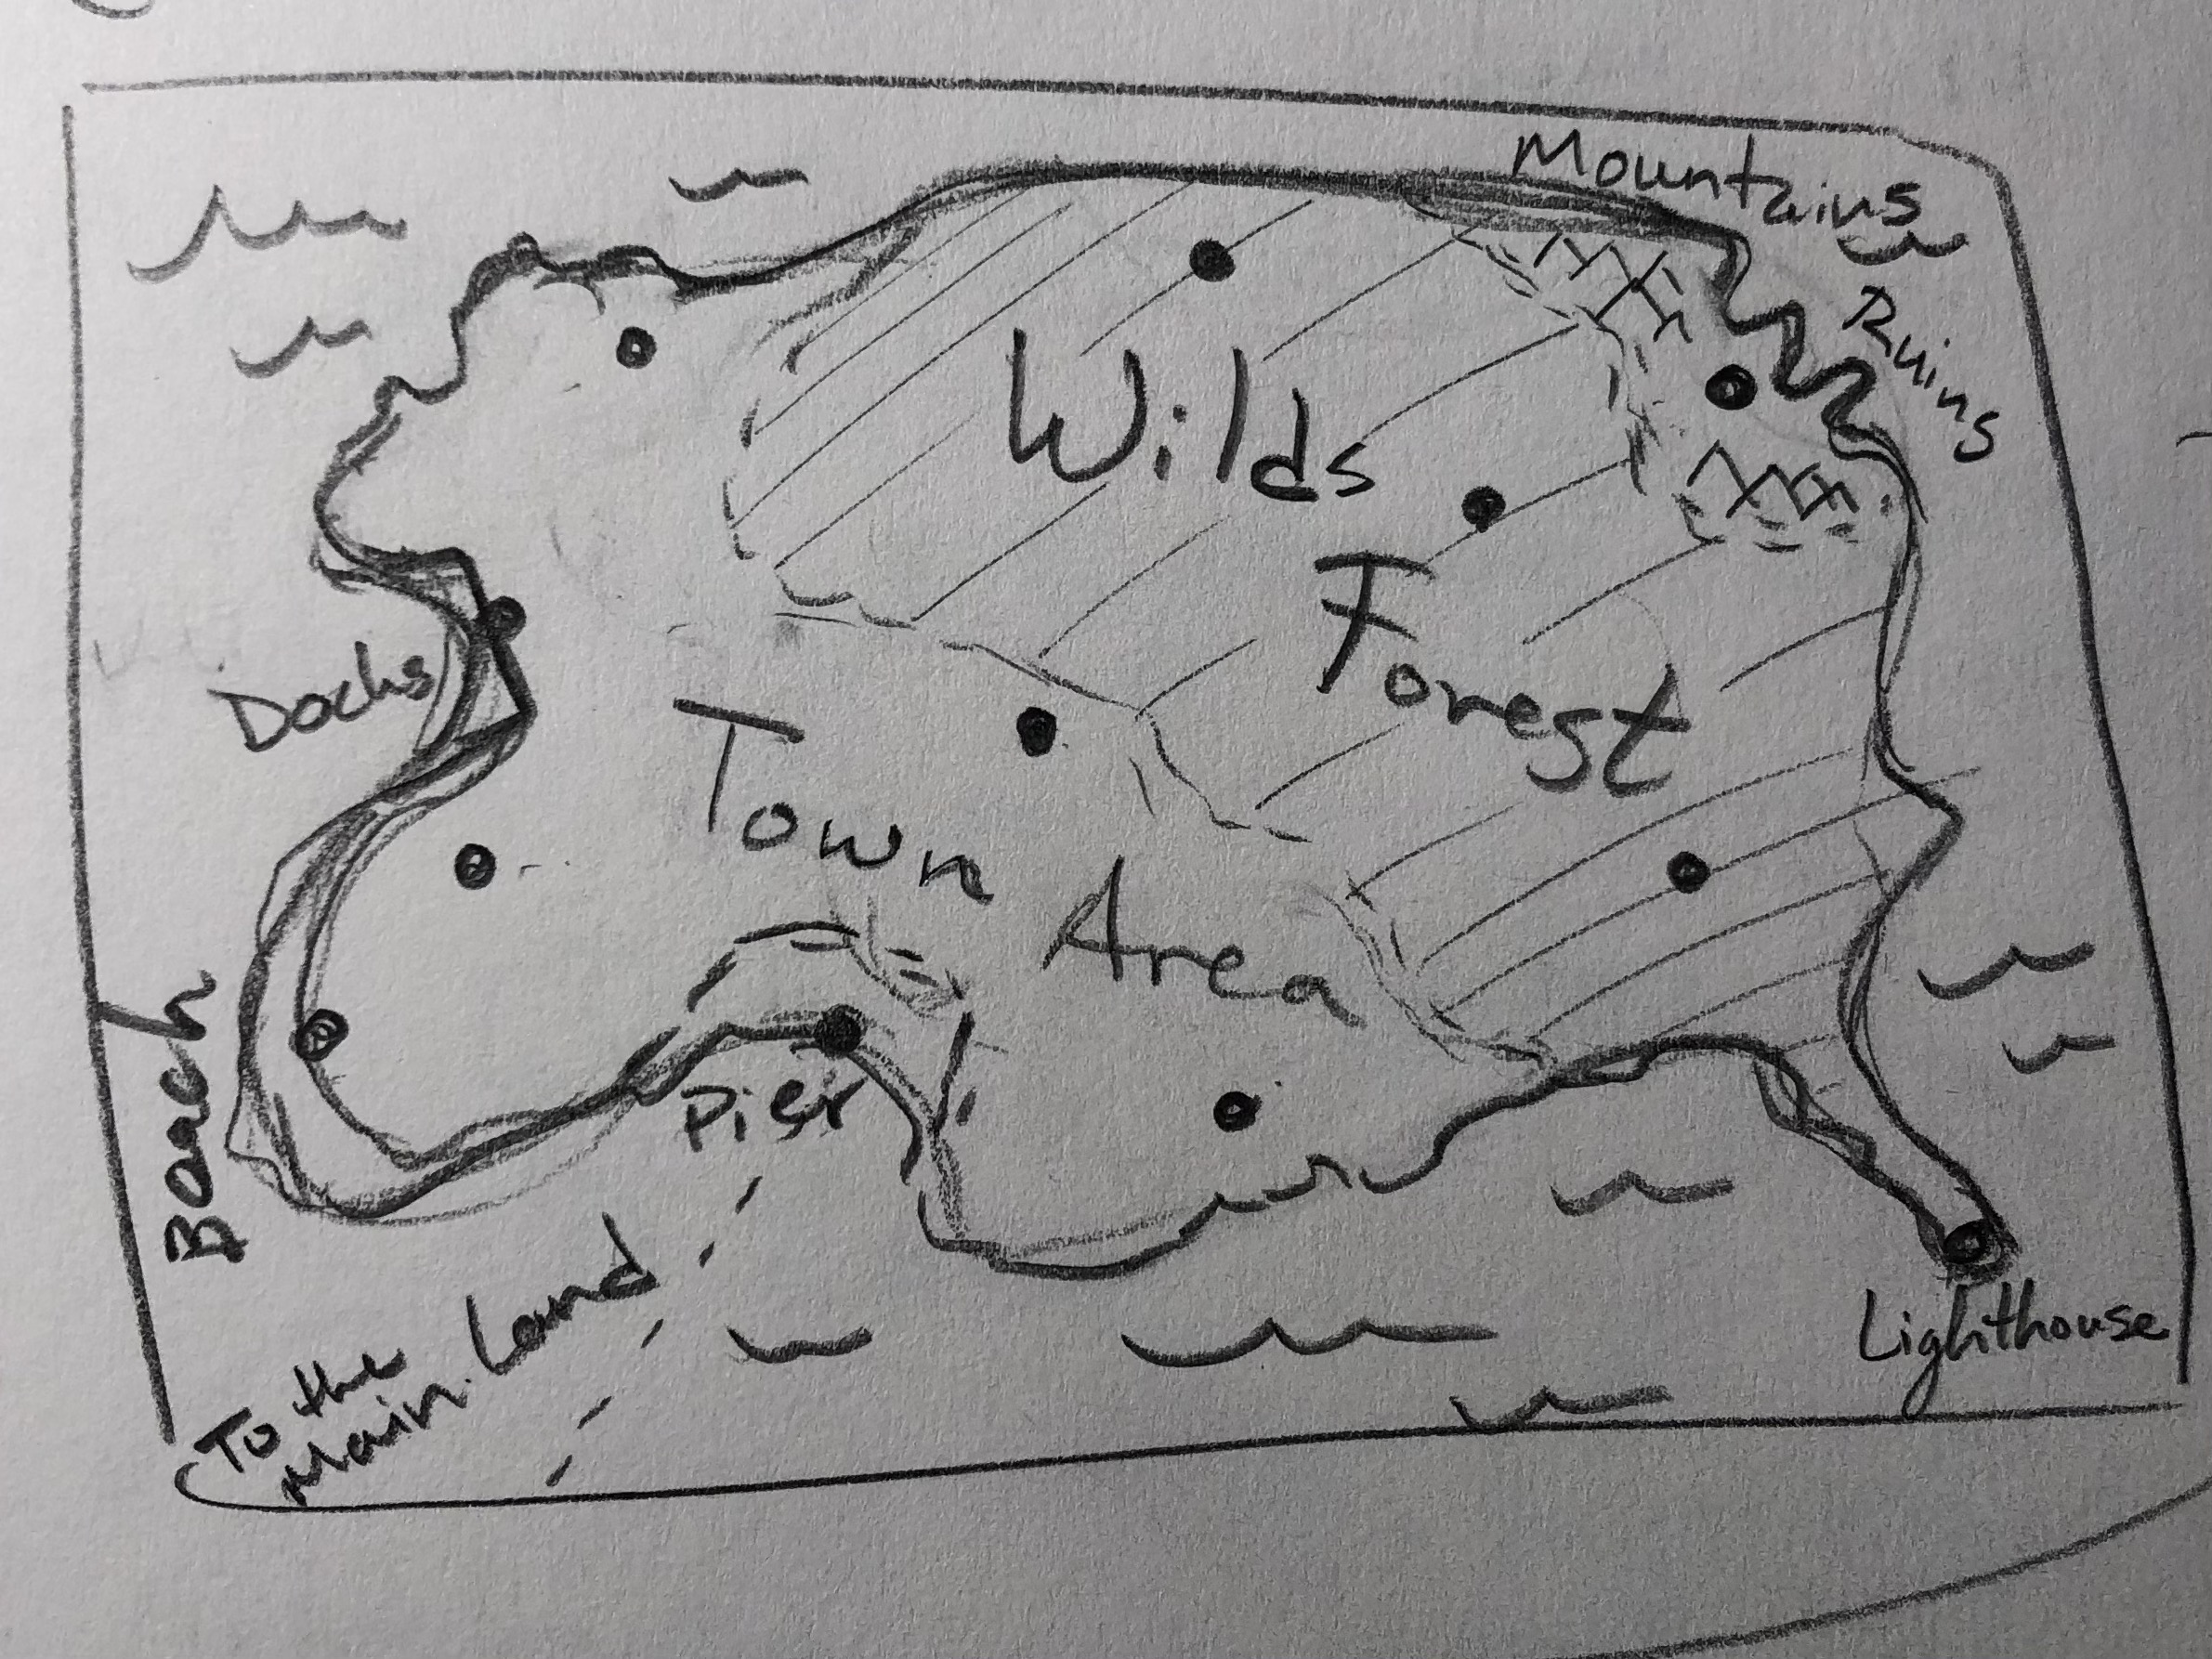 Mountains
Ruins
Wilds
Forest
Docks
Town
Area
Beach
Pier
To the
Main Land
Lighthouse